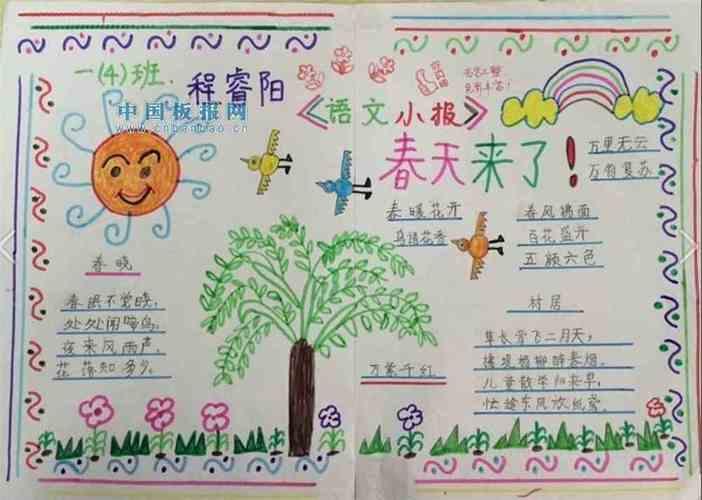 一(4)班.
程睿阳
中国板报网
www.cnbanbao.cn
《语文小报》
春天来了！
万里无云
万物复苏
春暖花开
鸟语花香
春风拂面
百花盛开
五颜六色
春晓
春眠不觉晓,
处处闻啼鸟,
夜来风雨声,
花落知多少。
万紫千红
村居
草长莺飞二月天,
拂堤杨柳醉春烟,
儿童散学归来早,
忙趁东风放纸鸢。